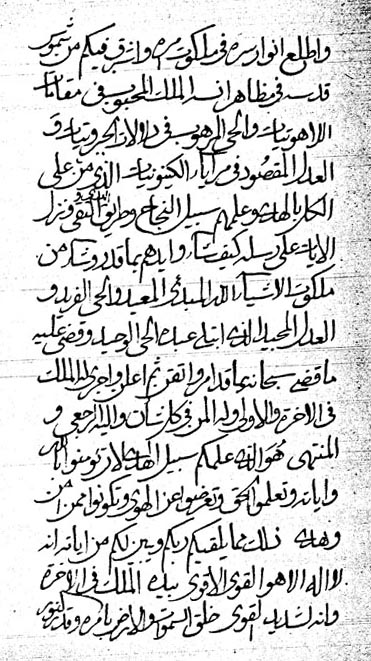 واطلع انوار سره في ملكوت امره واشرق فيكم من شموس
قدسه في مظاهر انه الملك المحبوب في مقامات
اللاهوتيات والحي المرهوب في دلالات الجبروتيات و
العدل المقصود في مرايا الكينونيات الذي من على
الكل بالهدى وعلمهم سبيل النجاح وطريق التقى ونزل
الايات على رسله كيف شاء وايدهم بما قدر وشاء من
ملكوت الاشياء انه المبدئ المعيد والحي الفريد و
العدل المجيد الذي ابتلى عبده الحي الوحيد وقضى عليه
ما قضى سبحانه بما قدر واتقن ثم اعلن واجرى له الملك
في الاخرة والاولى وله المن في كل شان واليه الرجعى و
المنتهى هو الذي علمكم سبيل الهدى لان تومنوا بالله
واياته وتعلموا الحق وتعرضوا عن الهوى وتكونوا ممن امن
وهدى ذلك مما يلقيكم ربكم ويبين لكم من اياته انه
لا اله الا هو القوي الاقوى بيده الملك في الاخرة
وانه لشديد القوى خلق السموات والارض بامره وقدر